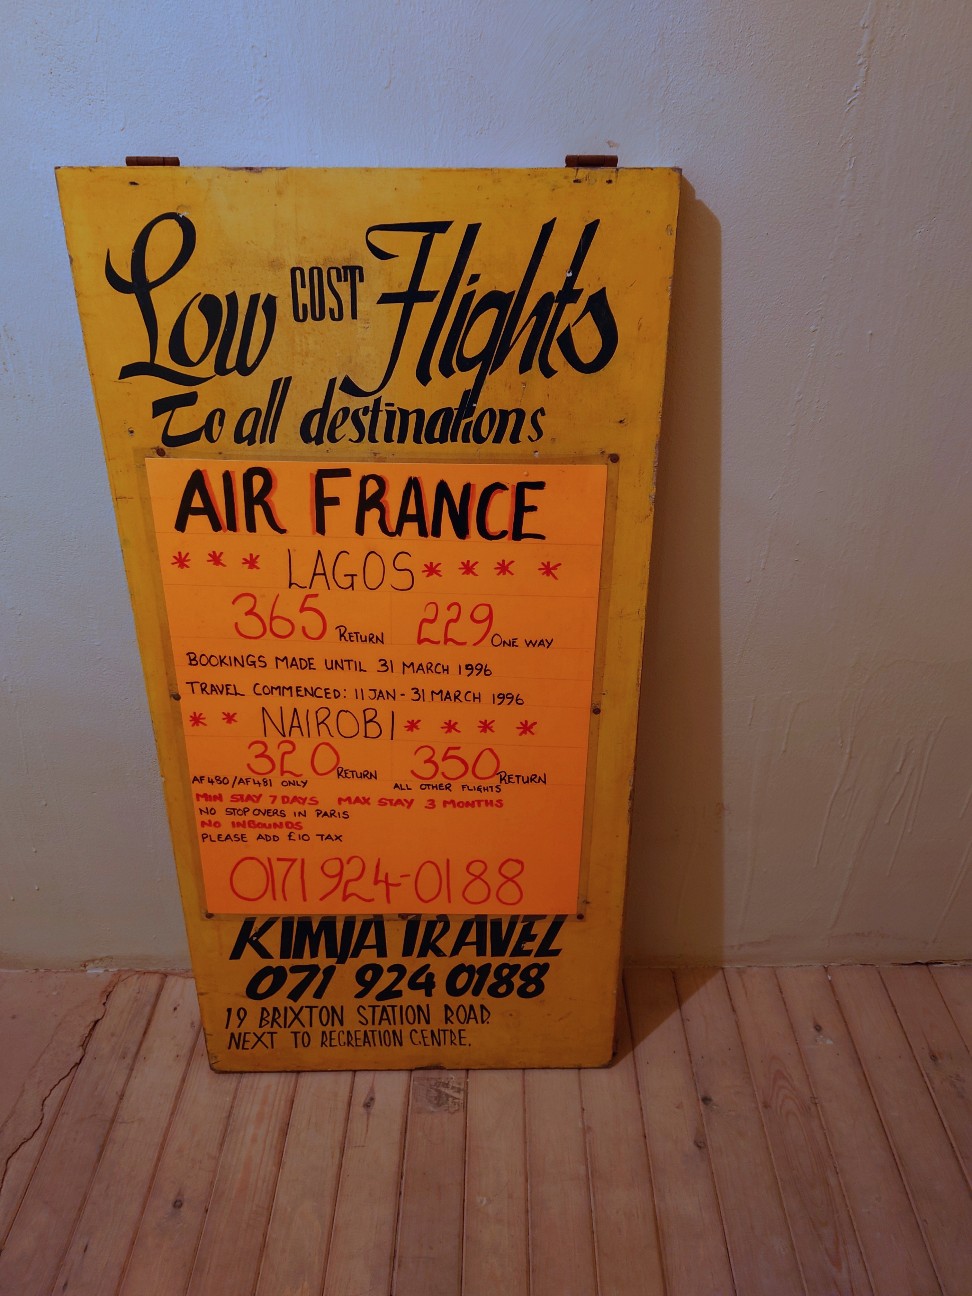 Low COST Flights
To all destinations
AIR FRANCE
*** LAGOS ****
365 RETURN 229 ONE WAY
BOOKINGS MADE UNTIL 31 MARCH 1996
TRAVEL COMMENCED: 11 JAN - 31 MARCH 1996
** NAIROBI ****
320 RETURN 350 RETURN
AF480/AF481 ONLY ALL OTHER FLIGHTS
MIN STAY 7 DAYS MAX STAY 3 MONTHS
NO STOPOVERS IN PARIS
NO INBOUNDS
PLEASE ADD £10 TAX
0171 924-0188
KIMJA TRAVEL
071 924 0188
19 BRIXTON STATION ROAD.
NEXT TO RECREATION CENTRE.